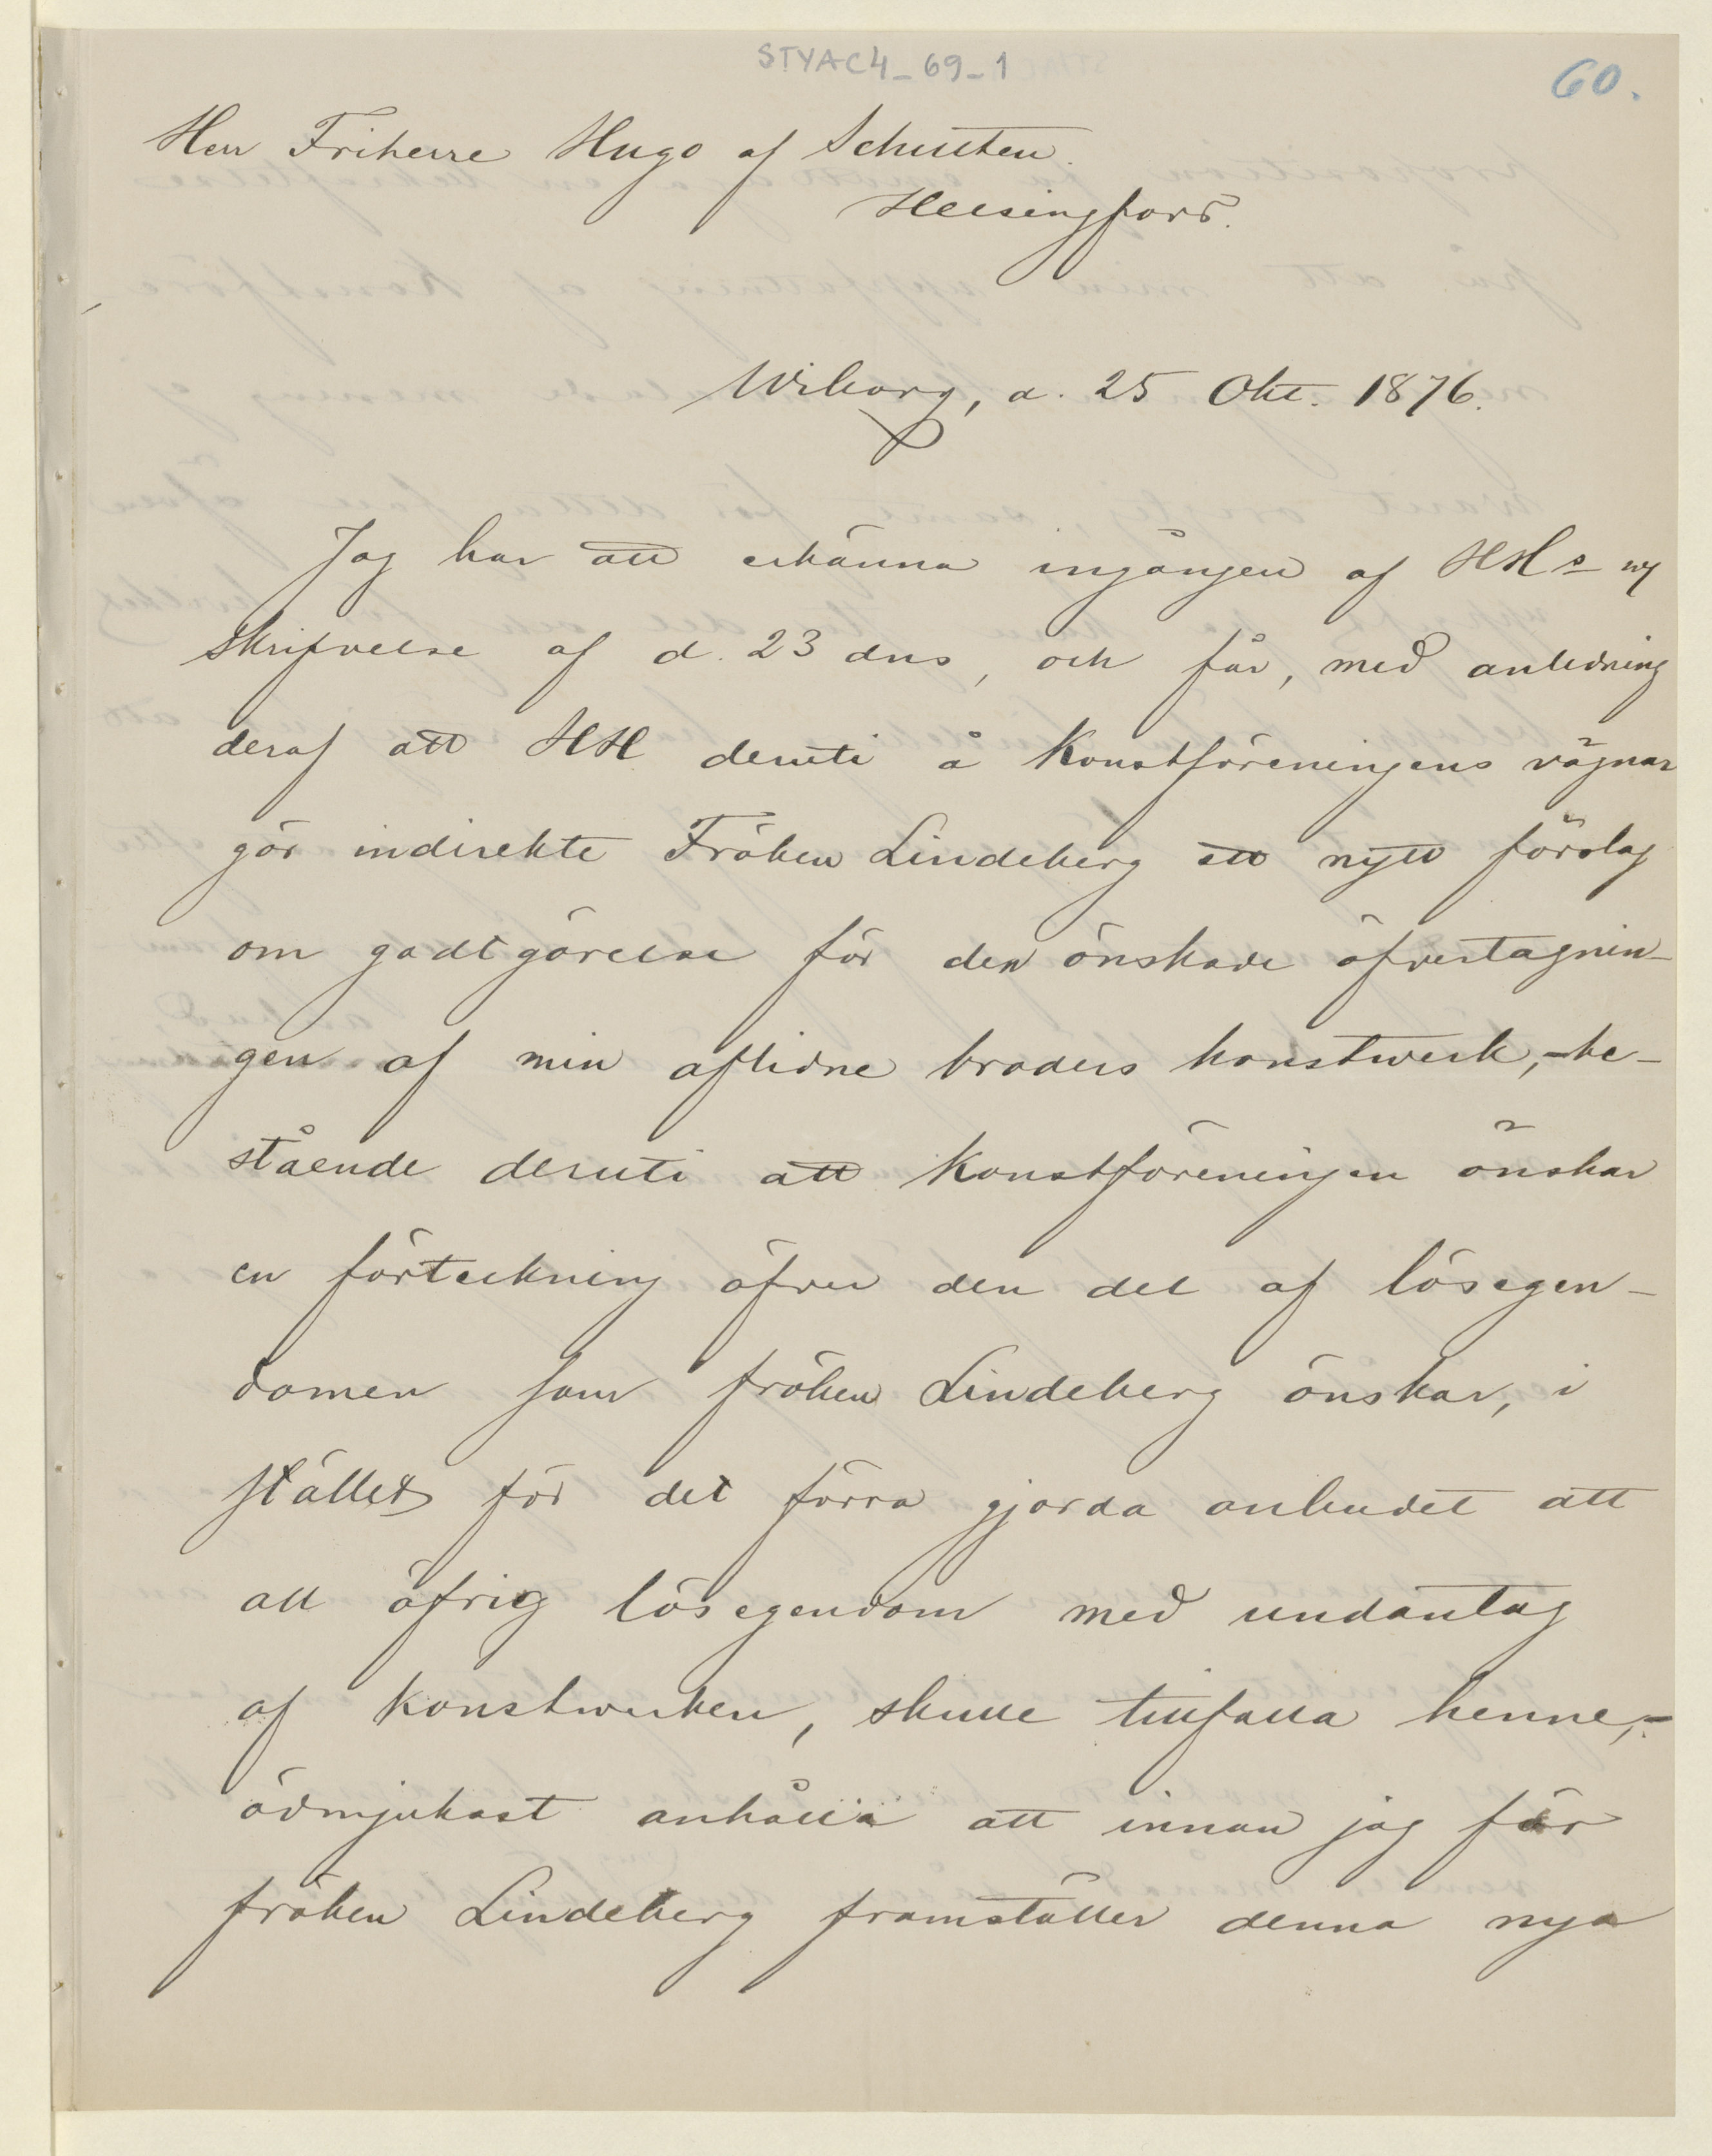 STYAC4_69_1
60.
Herr Friherre Hugo af Schultén.
Helsingfors.
Wiborg, d. 25 Okt. 1876.
Jag har att erkänna ingången af HHs
skrifvelse af d. 23 dns, och får, med anledning
deraf att HH deruti å Konstföreningens vägnar
gör indirekte Fröken Lindeberg ett nytt förslag
om godtgörelse för den önskade öfvertagnin-
gen af min aflidne broders konstwerk, - be-
stående deruti att Konstföreningen önskar
en förteckning öfver den del af lösegen-
domen som fröken Lindeberg önskar, i
stället för det förra gjorda anbudet att
all öfrig lösegendom med undantag
af konstwerken, skulle tillfalla henne, -
ödmjukast anhålla att innan jag för
fröken Lindeberg framställer denna nya